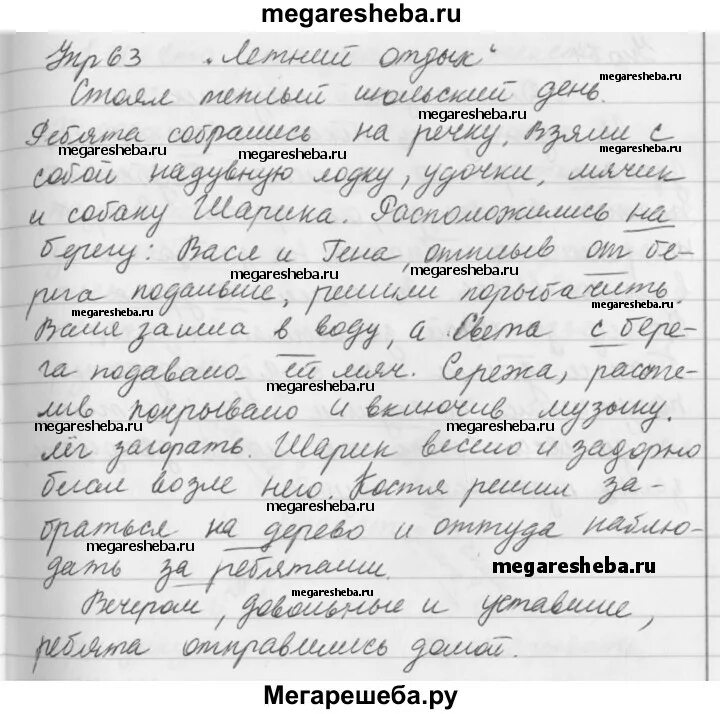 megaresheba.ru
Упр 63 „Летний отдых“
megaresheba.ru
Стоял теплый июльский день.
megaresheba.ru
Ребята собрались на речку. Взяли с
megaresheba.ru
megaresheba.ru
собой надувную лодку, удочки, мячик
и собаку Шарика. Расположились на
берегу: Вася и Гена, отплыв от бе-
megaresheba.ru
megaresheba.ru
рега подальше, решили порыбачить.
Валя зашла в воду, а Света с бере-
megaresheba.ru
га подавала ей мяч. Сережа, рассте-
megaresheba.ru
лив покрывало и включив музыку,
megaresheba.ru
megaresheba.ru
лёг загорать. Шарик весело и задорно
бегал возле него. Костя решил за-
megaresheba.ru
браться на дерево и оттуда наблю-
megaresheba.ru
дать за ребятами.
megaresheba.ru
Вечером, довольные и уставшие,
megaresheba.ru
ребята отправились домой.
Мегарешеба.ру